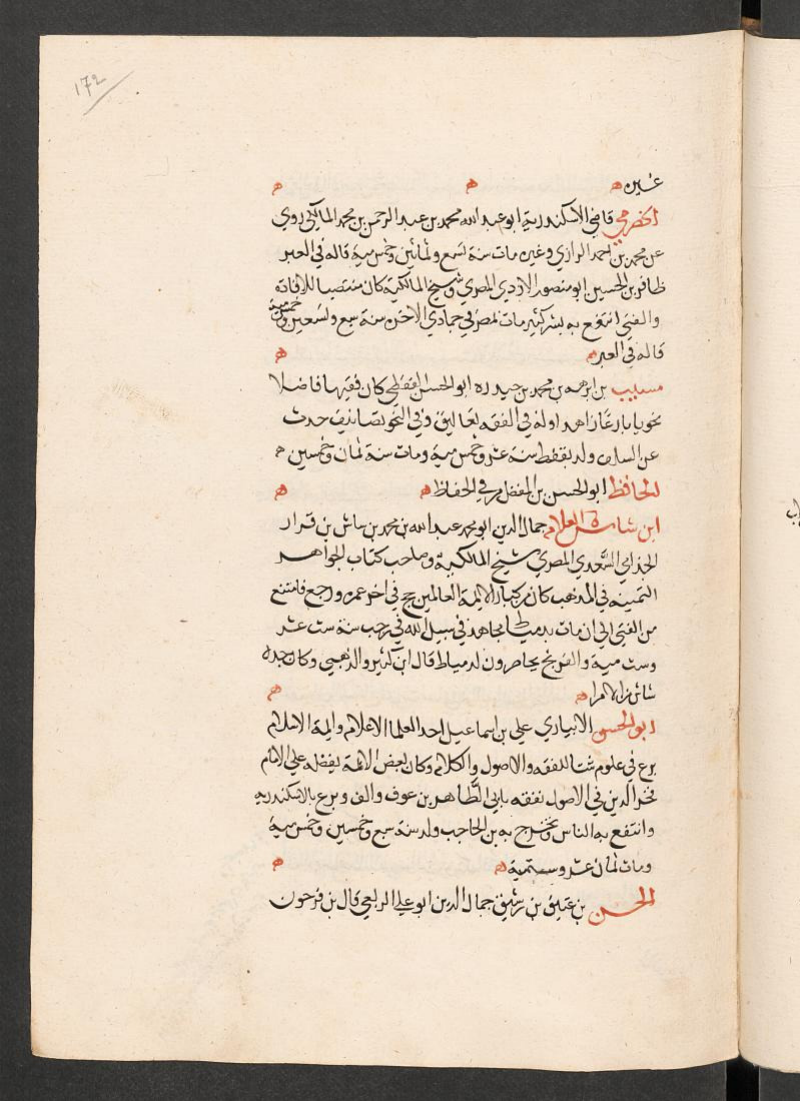 172
عشرين ه ه ه
الحضرمي قاضي الاسكندرية ابو عبد الله محمد بن عبد الرحمن بن محمد المالكي روي
عن محمد بن احمد الرازي وغيره مات سنة تسع وثمانين وخمس مية قاله في العبر
ظافر بن الحسين ابو منصور الازدي المصري شيخ المالكية كان منتصبا للافاده
والفتي انتفع به بشر كثير مات بمصر في جمادي الاخره سنة سبع وتسعين وخمسمية
قاله في العبر ه ه
بن محمد بن حيدره ابو الحسن القفطي كان فقيها فاضلا
نحويا بارعا زاهدا وله في الفقه تعاليق وفي النحو تصانيف حدث
عن السلفي ولد بقفط سنة عشر وخمس مية ومات سنة ثمان وخمسين ه
الحافظ ابو الحسن بن المفضل مر في الحفاظ ه ه
ابن شاس العلامه جمال الدين ابو محمد عبد الله بن محمد بن شاس بن قرار
الجذامي السعدي المصري شيخ المالكية وصاحب كتاب الجواهر
الثمينه في المذهب كان من كبار الايمة العالمين حج في اخر عمره ورجع فامتنع
من الفتي الي ان مات بدمياط مجاهد في سبيل الله في رجب سنة ست عشر
وست مية والفرنج يحاصرون لدمياط قال ابن كثير والذهبي وكان جده
شاس من الامرا ه ه
ابو الحسن الابياري علي بن اسماعيل احد العلما الاعلام وايمة الاسلام
برع في علوم شتا للفقه والاصول والكلام وكان بعض الائمة يفضله علي الامام
فخر الدين في الاصول تفقه بابي الطاهر بن عوف والف وبرع بالاسكندريه
وانتفع به الناس وتخرج به بن الحاجب ولد سنة سبع وخمسين وخمس مية
ومات ثمان عشر وستمية ه ه
الحسن بن عتيق بن رشيق جمال الدين ابو علي الربعي قال بن فرحون